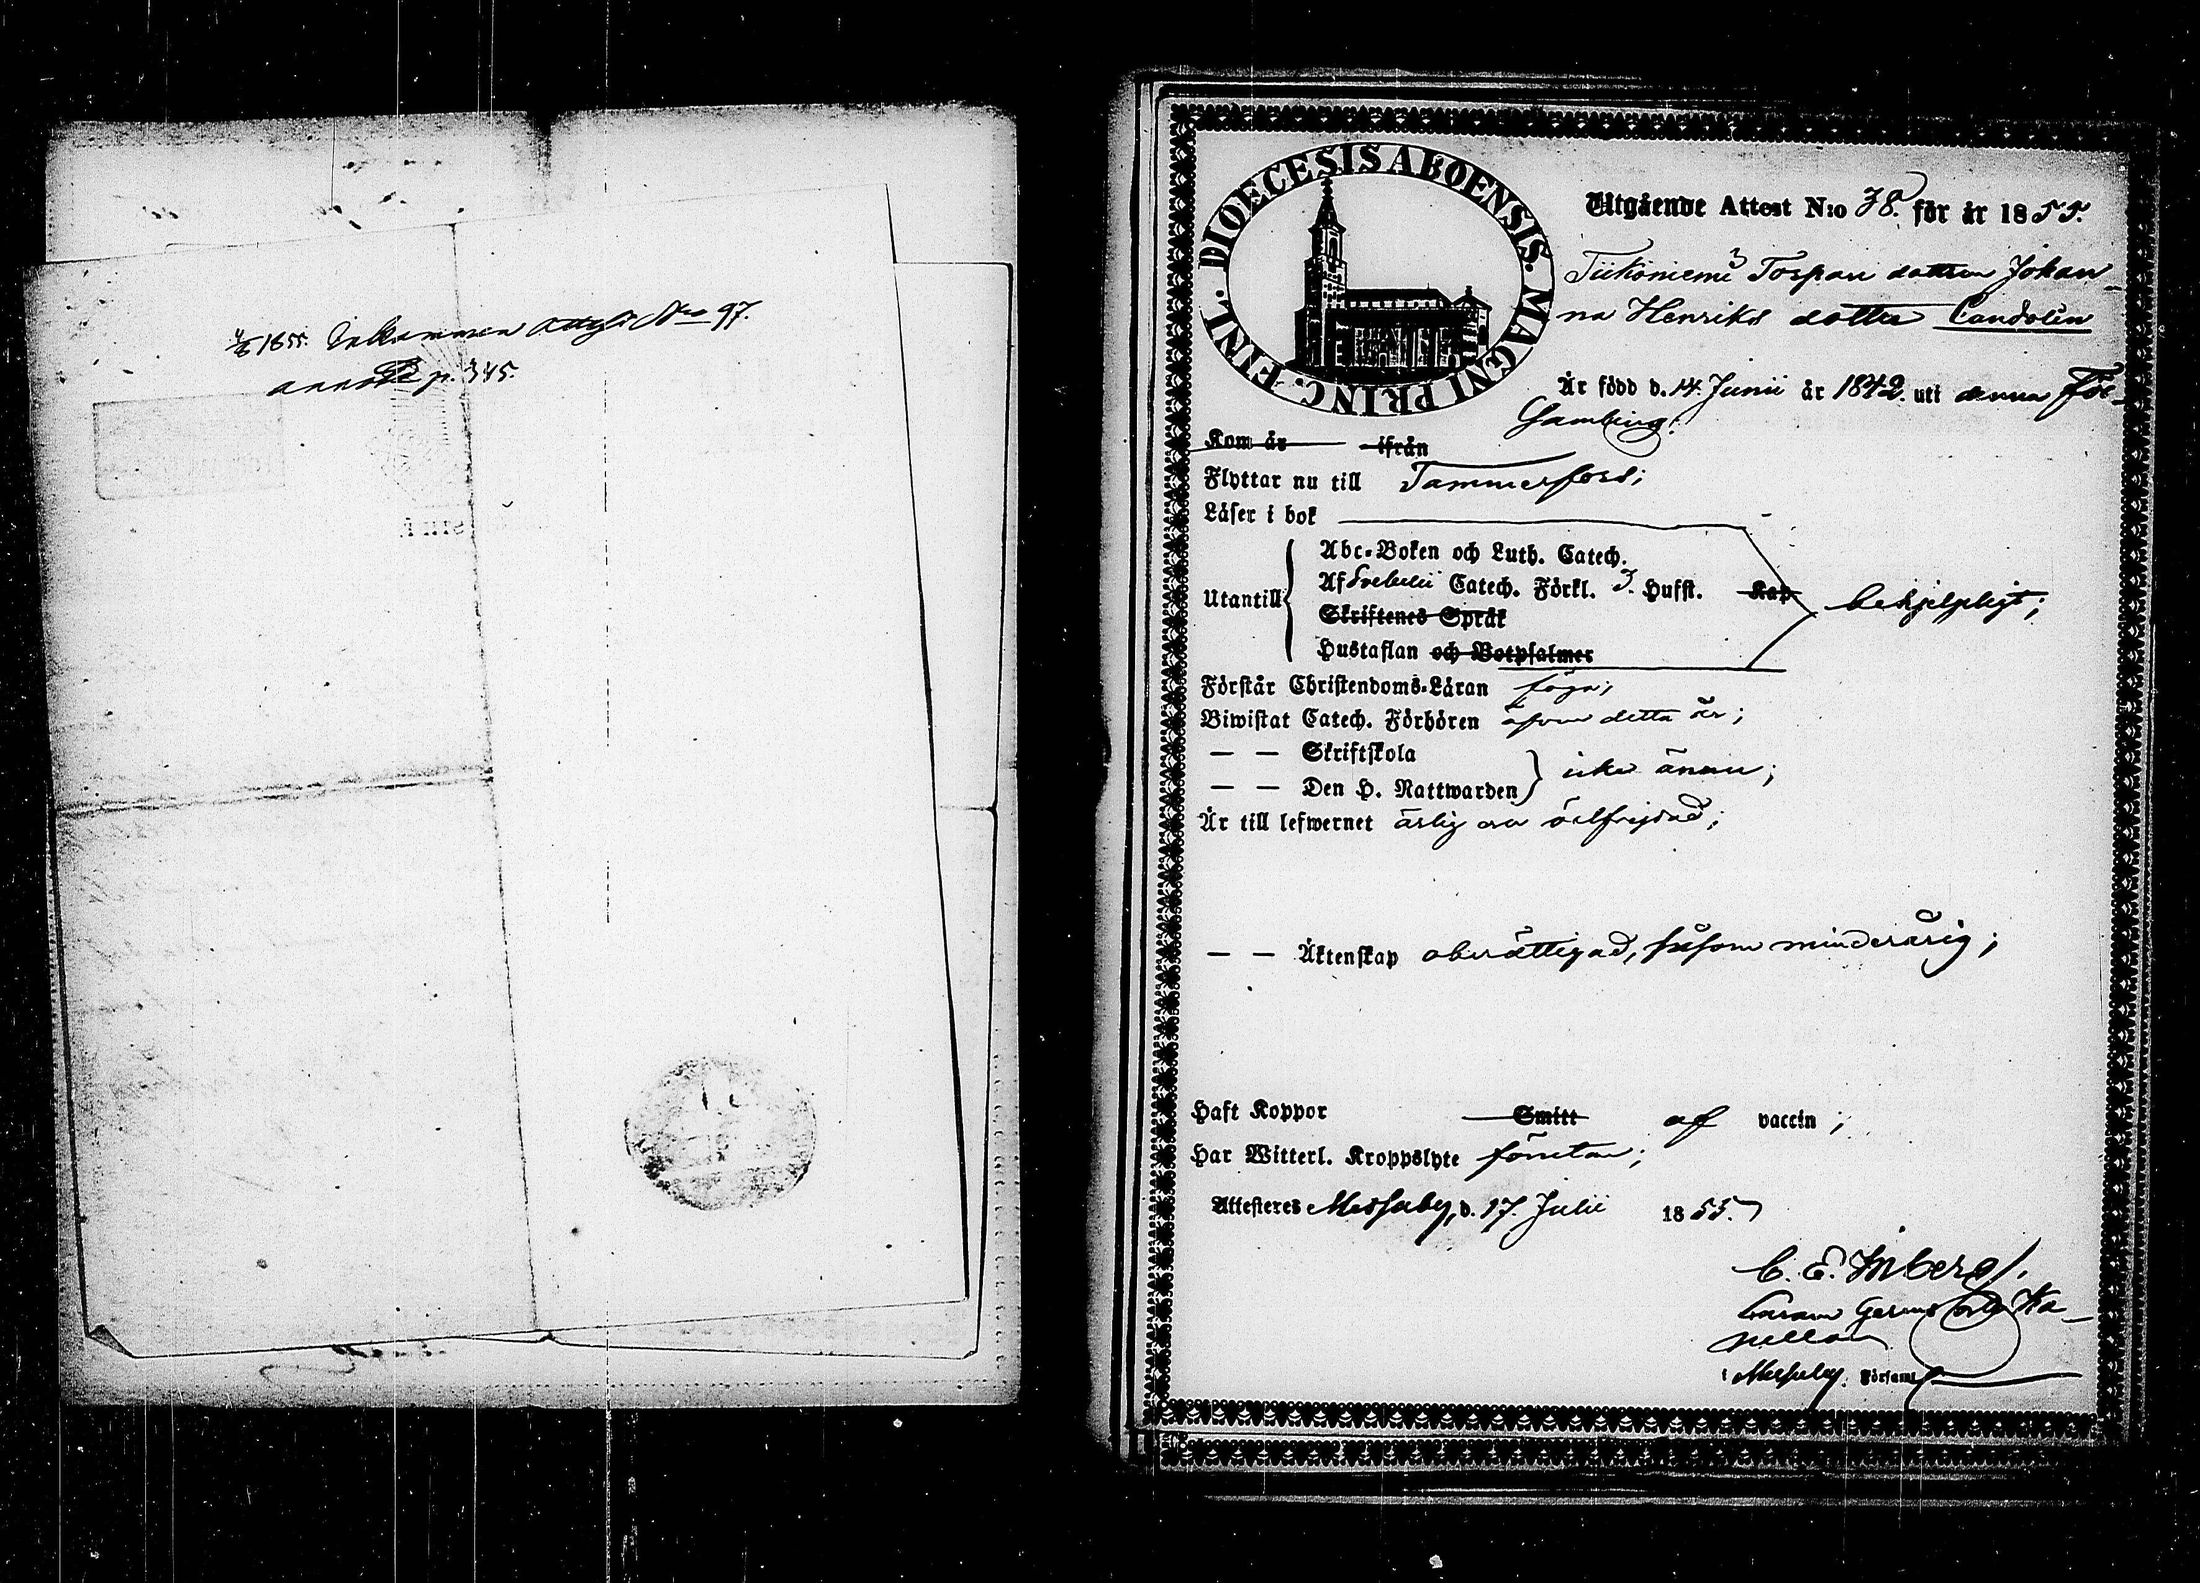 1855. Inkommen Attest Nro 97.
annot p. 345.
DIOECESIS ABOENSIS. MAGNI PRINC. FINL.
Utgående Attest N:o 38. för år 1855.
Torpare dottren Johan-
na Henriks dotter Candolin
Är född d. 14. Junii år 1842. uti denna För-
samling;
Kom år ifrån
Flyttar nu till Tammerfors;
Läser i bok
Abc-Boken och Luth. Catech.
Utantill Af Svebelii Catech. Förkl. 3. Hufst. Kap. behjelpligt;
Skriftenes Språk
Hustaflan och Botpsalmer
Förstår Christendoms-Läran föga;
Biwistat Catech. Förhören äfven detta år;
— — Skriftskola
icke ännu;
— — Den H. Nattwarden
Är till lefwernet ärlig och välfrejdad;
— — Äktenskap oberättigad, såsom minderårig;
Haft Koppor Smitt af vaccin;
Har Witterl. Kroppslyte
Attesteres Messuby, d. 17. Julii 1855.
C. E. Inberg
Ka-
pellan
i Messuby. Församl.